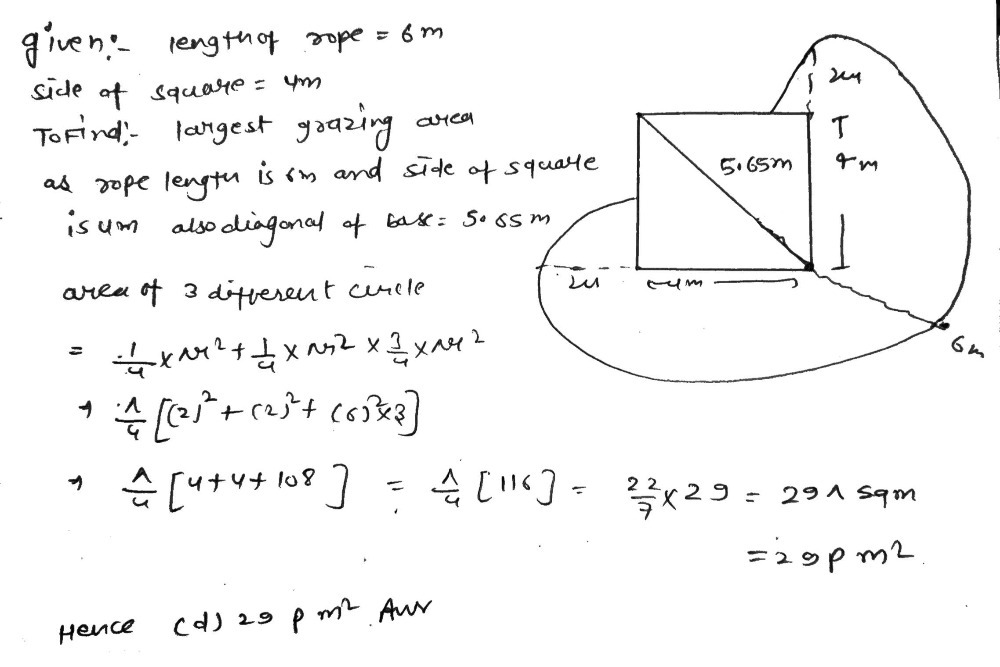 given:- length of rope = 6 m
side of square = 4m
To Find:- largest grazing area
as rope length is 6m and side of square
is 4m also diagonal of base = 5.65 m
area of 3 different circle
= 1/4 × πr² + 1/4 × πr² × 3/4 × πr²
→ π/4 [(2)² + (2)² + (6)²×3]
→ π/4 [4+4+108] = π/4 [116] = 22/7 × 29 = 29π sqm
= 29 p m²
Hence (d) 29 p m² Ans
2m
4m
5.65m
2m
4m
6m